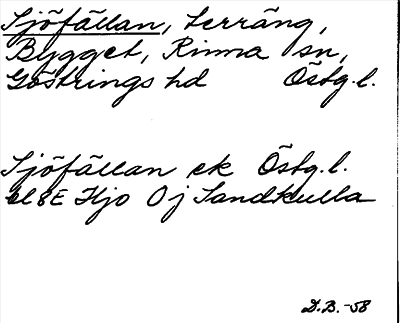 Sjöfällan, terräng,
Bygget, Rinna sn,
Göstrings hd Östg.l.
Sjöfällan ek Östg.l.
bl 8E Hjo Oj Sandkulla
D.B.-58